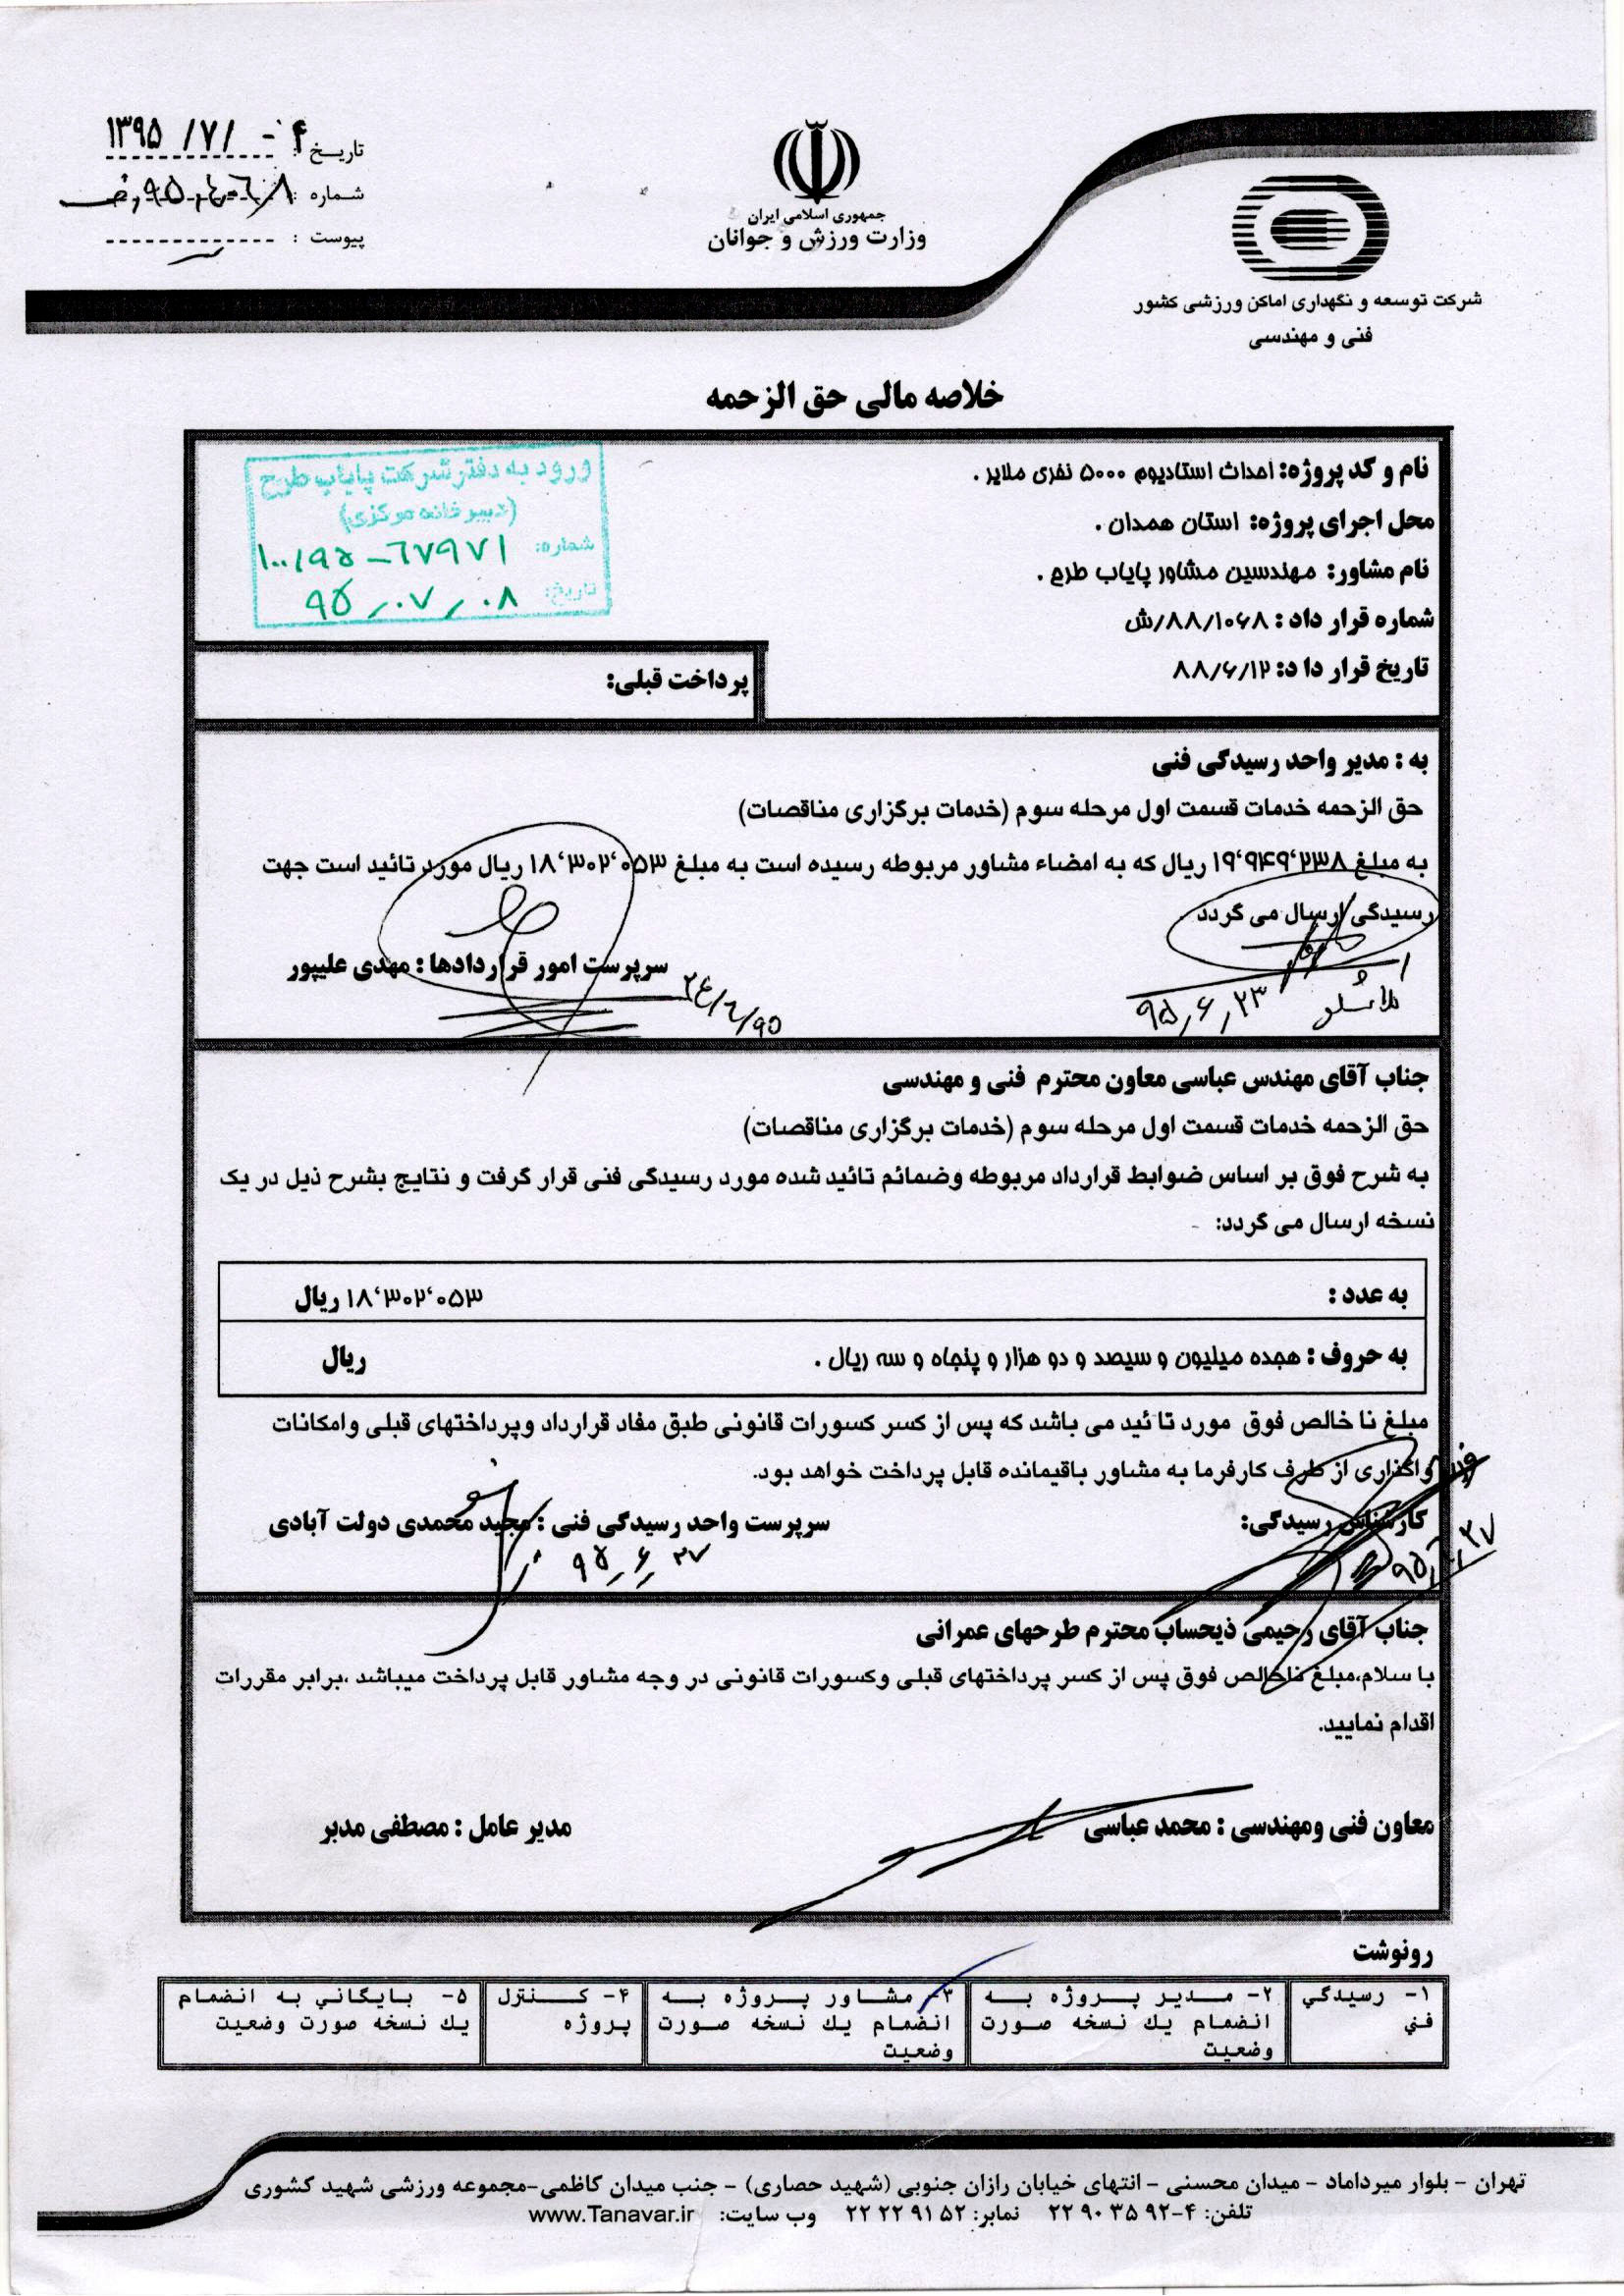 تاریخ : ۱۳۹۵ /۷/ ۰۴
شماره :
پیوست :
جمهوری اسلامی ایران
وزارت ورزش و جوانان
شرکت توسعه و نگهداری اماکن ورزشی کشور
فنی و مهندسی
خلاصه مالی حق الزحمه
نام و کد پروژه: احداث استادیوم ۵۰۰۰ نفری ملایر .
محل اجرای پروژه: استان همدان .
نام مشاور: مهندسین مشاور پایاب طرح .
شماره قرار داد : ۸۸/۱۰۶۸/ش
تاریخ قرار دا د: ۸۸/۶/۱۲
ورود به دفتر شرکت پایاب طرح
(دبیرخانه مرکزی)
شماره: ۱۰۰/۹۵-۶۷۹۷۱
تاریخ: ۹۵/۰۷/۰۸
پرداخت قبلی:
به : مدیر واحد رسیدگی فنی
حق الزحمه خدمات قسمت اول مرحله سوم (خدمات برگزاری مناقصات)
به مبلغ ۱۹٬۹۴۹٬۲۳۸ ریال که به امضاء مشاور مربوطه رسیده است به مبلغ ۱۸٬۳۰۲٬۰۵۳ ریال مورد تائید است جهت
رسیدگی ارسال می گردد
سرپرست امور قراردادها : مهدی علیپور
۲۴/۶/۹۵
۹۵/۶/۲۳
جناب آقای مهندس عباسی معاون محترم فنی و مهندسی
حق الزحمه خدمات قسمت اول مرحله سوم (خدمات برگزاری مناقصات)
به شرح فوق بر اساس ضوابط قرارداد مربوطه وضمائم تائید شده مورد رسیدگی فنی قرار گرفت و نتایج بشرح ذیل در یک
نسخه ارسال می گردد:
به عدد : ۱۸٬۳۰۲٬۰۵۳ ریال
به حروف : هجده میلیون و سیصد و دو هزار و پنجاه و سه ریال . ریال
مبلغ نا خالص فوق مورد تا ئید می باشد که پس از کسر کسورات قانونی طبق مفاد قرارداد وپرداختهای قبلی وامکانات
واگذاری از طرف کارفرما به مشاور باقیمانده قابل پرداخت خواهد بود.
کارشناس رسیدگی: سرپرست واحد رسیدگی فنی : مجید محمدی دولت آبادی
۹۵/۶/۲۷ ۹۵/۶/۲۷
جناب آقای رحیمی ذیحساب محترم طرحهای عمرانی
با سلام،مبلغ ناخالص فوق پس از کسر پرداختهای قبلی وکسورات قانونی در وجه مشاور قابل پرداخت میباشد ،برابر مقررات
اقدام نمایید.
معاون فنی ومهندسی : محمد عباسی مدیر عامل : مصطفی مدبر
رونوشت
۱- رسیدگی فنی
۲- مدیر پروژه به انضمام یك نسخه صورت وضعیت
۳- مشاور پروژه به انضمام یك نسخه صورت وضعیت
۴- کنترل پروژه
۵- بایگانی به انضمام یك نسخه صورت وضعیت
تهران - بلوار میرداماد - میدان محسنی - انتهای خیابان رازان جنوبی (شهید حصاری) - جنب میدان کاظمی-مجموعه ورزشی شهید کشوری
تلفن: ۴-۹۲ ۳۵ ۹۰ ۲۲ نمابر: ۵۲ ۹۱ ۲۲ ۲۲ وب سایت: www.Tanavar.ir